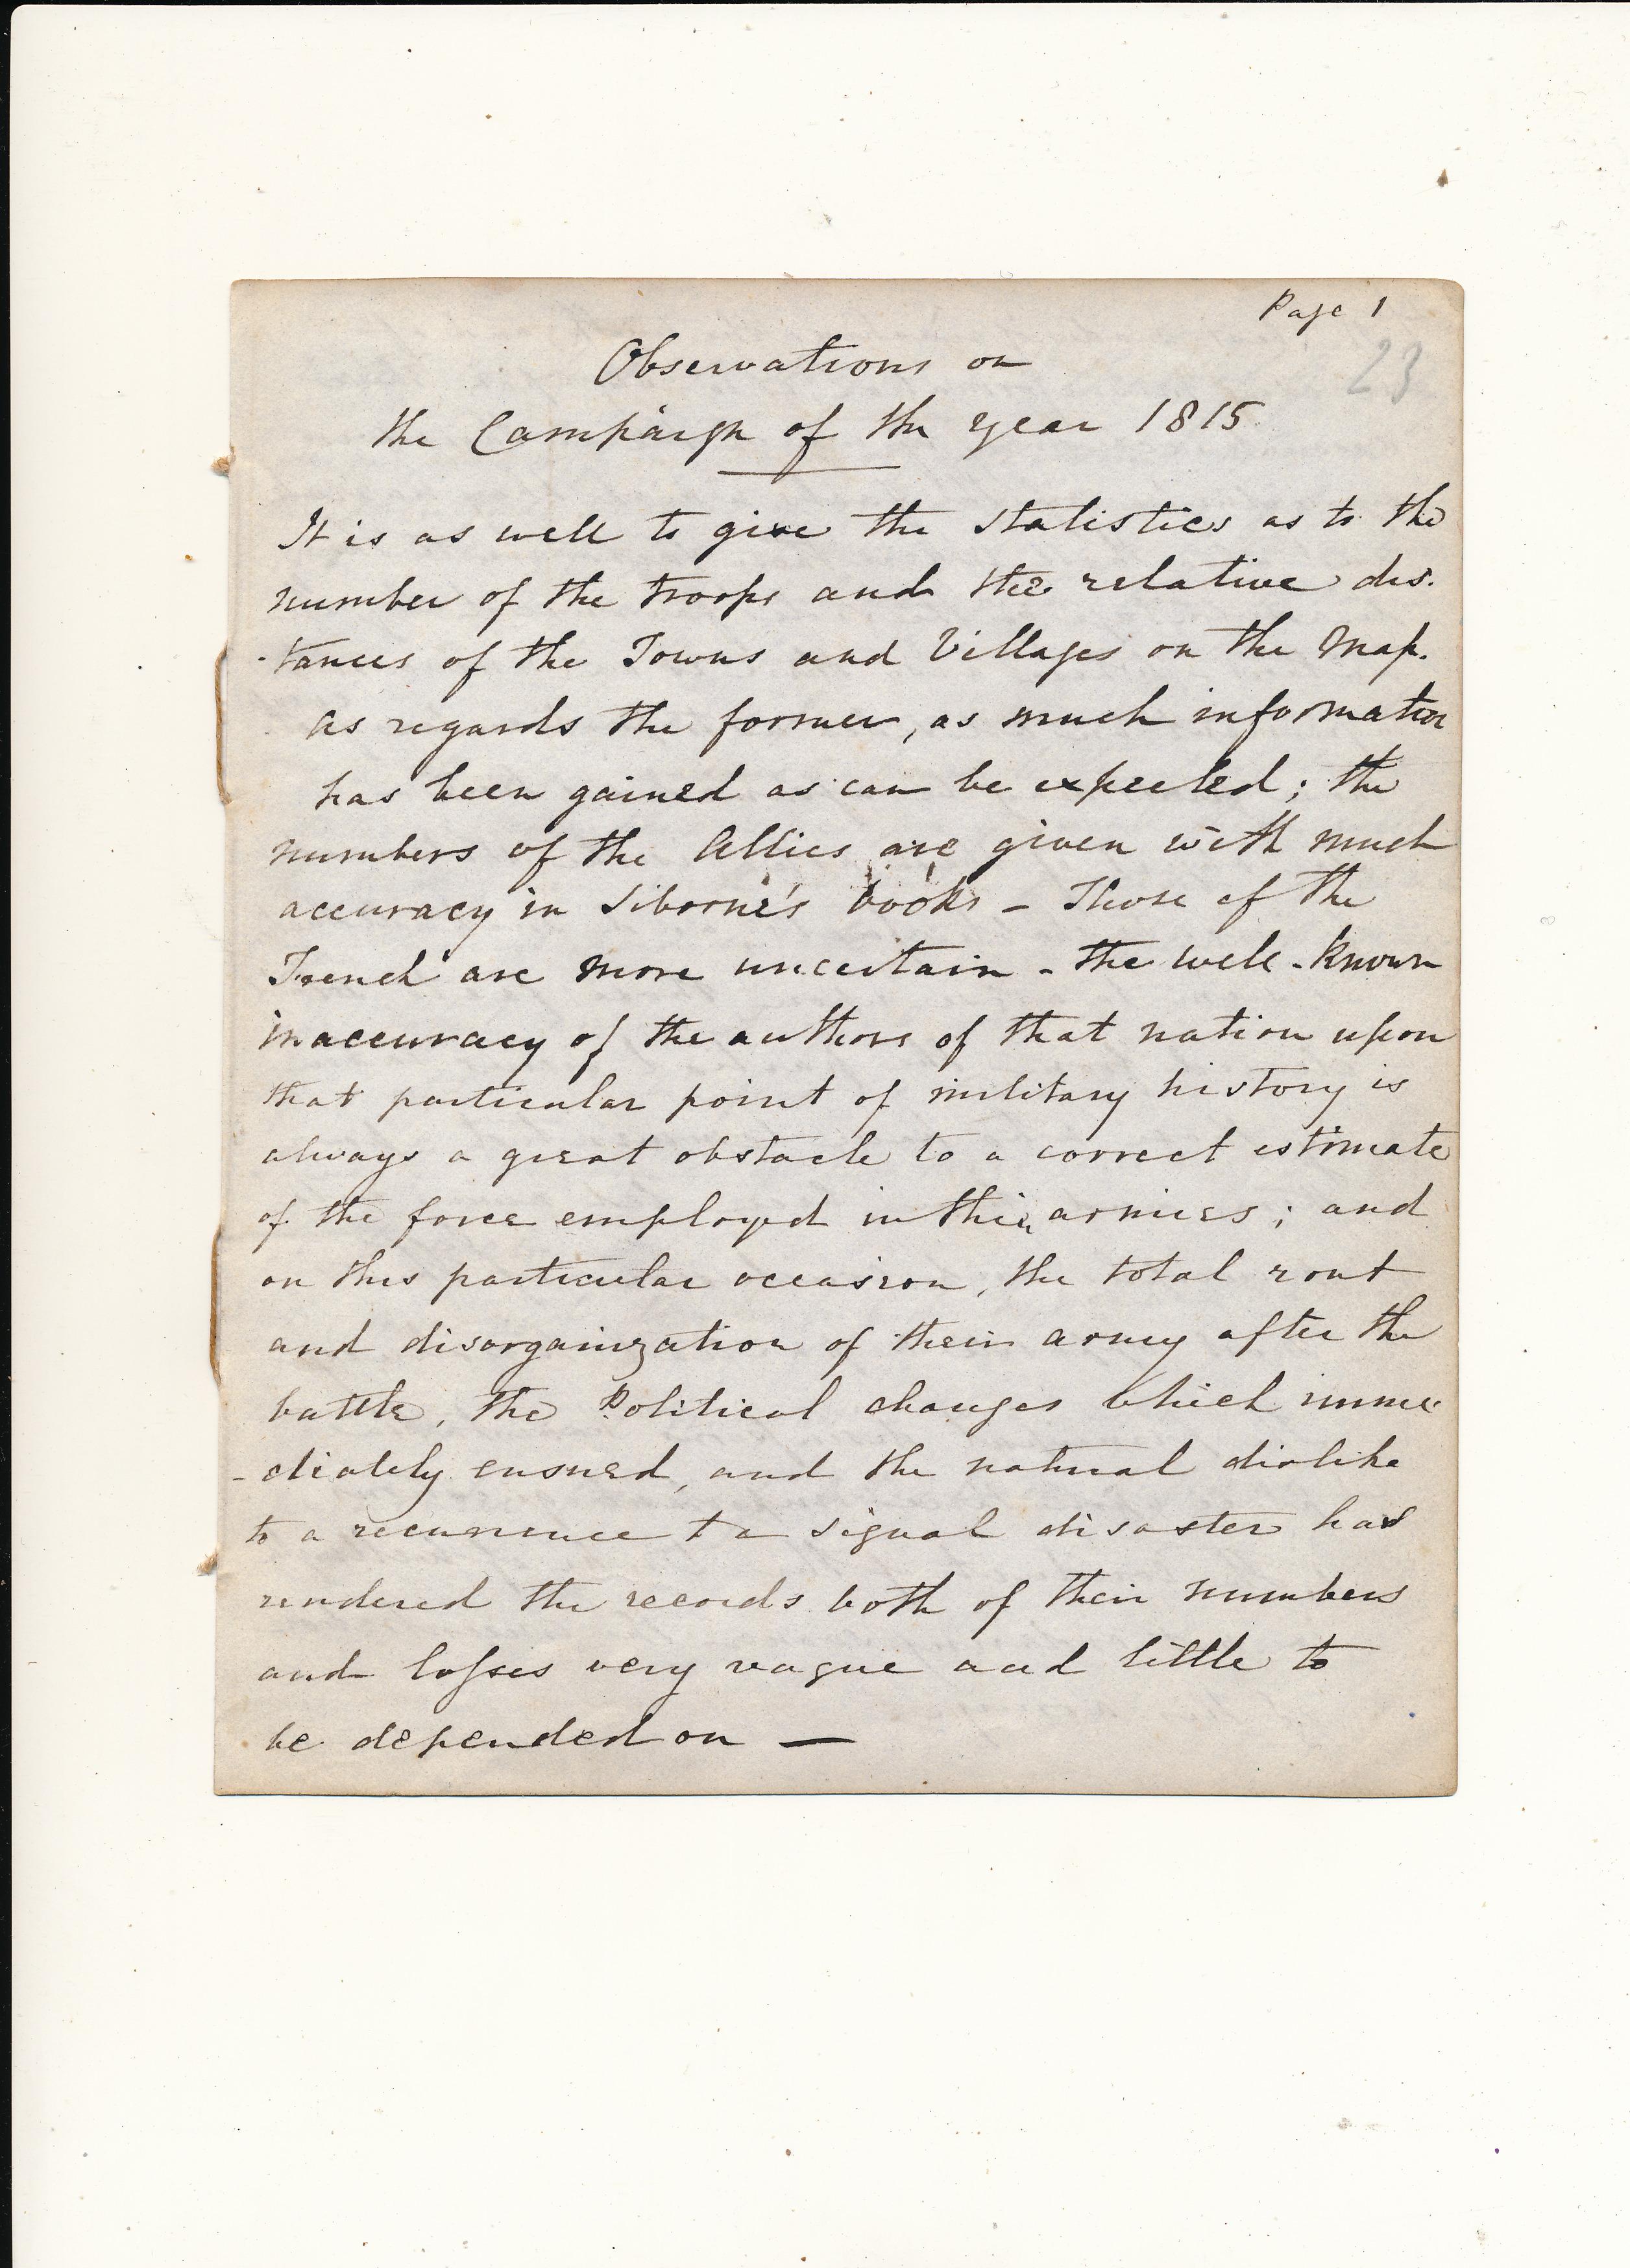 Page 1
23
Observations on
the Campaign of the year 1815
It is as well to give the statistics as to the
number of the troops and the relative dis-
-tances of the Towns and Villages on the Map.
As regards the former, as much information
has been gained as can be expected; the
numbers of the Allies are given with much
accuracy in Siborne's books - Those of the
French are more uncertain - the well-known
inaccuracy of the authors of that nation upon
that particular point of military history is
always a great obstacle to a correct estimate
of the force employed in their armies; and
on this particular occasion, the total rout
and disorganization of their army after the
battle, the Political changes which imme-
-diately ensued, and the natural dislike
to a recurrence to a signal disaster has
rendered the records both of their numbers
and losses very vague and little to
be depended on —